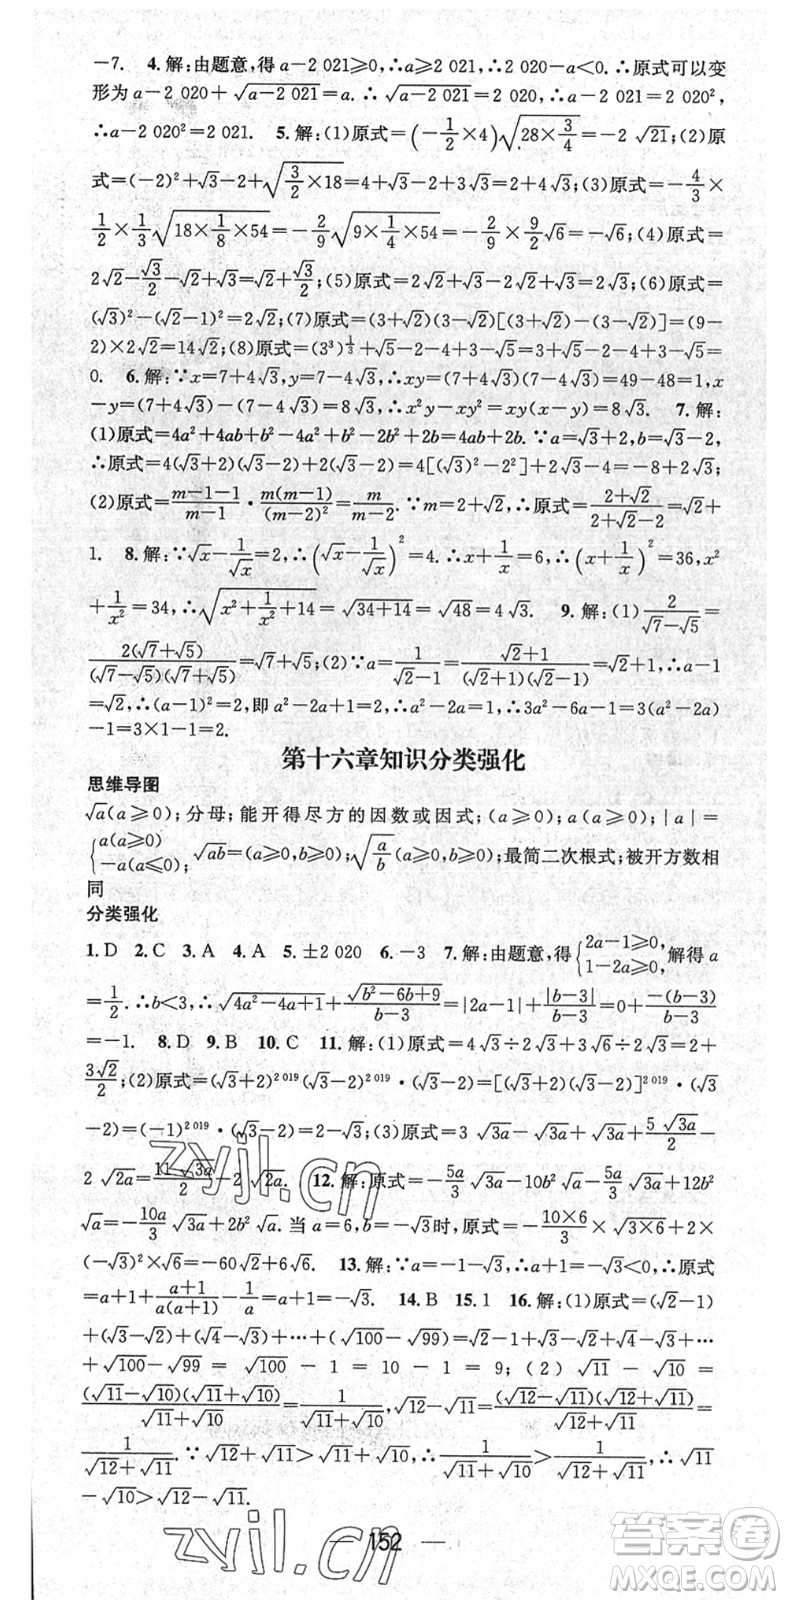 －7. 4. 解：由题意，得 a－2 021≥0，∴a≥2 021，∴2 020－a＜0. ∴原式可以变
形为 a－2 020＋√(a－2 021)＝a. ∴√(a－2 021)＝2 020，∴a－2 021＝2 020²，
∴a－2 020²＝2 021. 5. 解：(1)原式＝(－1/2×4)√(28×3/4)＝－2√21；(2)原
式＝(－2)²＋√3－2＋√(3/2×18)＝4＋√3－2＋3√3＝2＋4√3；(3)原式＝－4/3×
1/2×1/3√(18×1/8×54)＝－2/9√(9×1/4×54)＝－2/9×9/2√6＝－√6；(4)原式＝
2√2－√3/2－√2＋√3＝√2＋√3/2；(5)原式＝2√2＋√3－2√2＋√3＝2√3；(6)原式＝
(√3)²－(√2－1)²＝2√2；(7)原式＝(3＋√2)(3－√2)[(3＋√2)－(3－√2)]＝(9－
2)×2√2＝14√2；(8)原式＝(3³)^(1/3)＋√5－2－4＋3－√5＝3＋√5－2－4＋3－√5＝
0. 6. 解：∵x＝7＋4√3，y＝7－4√3，∴xy＝(7＋4√3)(7－4√3)＝49－48＝1，x
－y＝(7＋4√3)－(7－4√3)＝8√3，∴x²y－xy²＝xy(x－y)＝8√3. 7. 解：
(1)原式＝4a²＋4ab＋b²－4a²＋b²－2b²＝4ab－2b. ∵a＝√3＋2，b＝√3－2，
∴原式＝4(√3＋2)(√3－2)－2(√3－2)＝4[(√3)²－2²]＋2√3－4＝－8＋2√3；
(2)原式＝(m－1－1)/(m－1)·m(m－1)/(m－2)²＝m/(m－2). ∵m＝2＋√2，∴原式＝(2＋√2)/(2＋√2－2)＝√2＋
1. 8. 解：∵√x－1/√x＝2，∴(√x－1/√x)²＝4. ∴x＋1/x＝6，∴(x＋1/x)²＝36，x²
＋1/x²＝34，∴√(x²＋1/x²＋14)＝√(34＋14)＝√48＝4√3. 9. 解：(1)2/(√7－√5)＝
2(√7＋√5)/((√7－√5)(√7＋√5))＝√7＋√5；(2)∵a＝1/(√2－1)＝(√2＋1)/((√2＋1)(√2－1))＝√2＋1，∴a－1
＝√2，∴(a－1)²＝2，即 a²－2a＋1＝2，∴a²－2a＝1，∴3a²－6a－1＝3(a²－2a)
－1＝3×1－1＝2.
第十六章知识分类强化
思维导图
√a(a≥0)；分母；能开得尽方的因数或因式；(a≥0)；a(a≥0)；|a|＝
{a(a≥0) －a(a≤0)；√ab＝(a≥0，b≥0)；√(a/b)(a≥0，b≥0)；最简二次根式；被开方数相
同
分类强化
1. D 2. C 3. A 4. A 5. ±2 020 6. －3 7. 解：由题意，得{2a－1≥0， 1－2a≥0，解得 a
＝1/2. ∴b＜3，∴√(4a²－4a＋1)＋√(b²－6b＋9)/(b－3)＝|2a－1|＋|b－3|/(b－3)＝0＋－(b－3)/(b－3)
＝－1. 8. D 9. B 10. C 11. 解：(1)原式＝4√3÷2√3＋3√6÷2√3＝2＋
3√2/2；(2)原式＝(√3＋2)^2 019(√3－2)^2 019·(√3－2)＝[(√3＋2)(√3－2)]^2 019·(√3
－2)＝(－1)^2 019·(√3－2)＝2－√3；(3)原式＝3√3a－√3a＋√3a＋5√3a/2－
2√2a＝11√3a/2－2√2a. 12. 解：原式＝－5a/3√3a－10b²√a－5a/3√3a＋12b²
√a＝－10a/3√3a＋2b²√a. 当 a＝6，b＝－√3时，原式＝－(10×6)/3×√(3×6)＋2×
(－√3)²×√6＝－60√2＋6√6. 13. 解：∵a＝－1－√3，∴a＋1＝－√3＜0，∴原式
＝a＋1＋(a＋1)/(a(a＋1))－1/a＝a＋1＝－√3. 14. B 15. 1 16. 解：(1)原式＝(√2－1)
＋(√3－√2)＋(√4－√3)＋…＋(√100－√99)＝√2－1＋√3－√2＋√4－√3＋…
＋√100－√99＝√100－1＝10－1＝9；(2)√11－√10＝
(√11－√10)(√11＋√10)/(√11＋√10)＝1/(√11＋√10)，√12－√11＝(√12－√11)(√12＋√11)/(√12＋√11)＝
1/(√12＋√11). ∵√12＋√11＞√11＋√10，∴1/(√11＋√10)＞1/(√12＋√11)，∴√11
－√10＞√12－√11.
152
zyjl.cn
zyjl.cn
答案圈
MXQE.COM